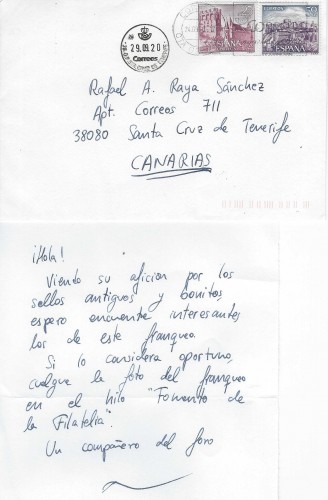 29.09.20
Correos
ESPAÑA
ESPAÑA
Rafael A. Raya Sánchez
Apt. Correos 711
38080 Santa Cruz de Tenerife
CANARIAS
¡Hola!
Viendo su aficion por los
sellos antiguos y bonitos,
espero encuentre interesantes
los de este franqueo.
Si lo considera oportuno,
cuelgue la foto del franqueo
en el hilo "Fomento de
la Filatelia".
Un compañero del foro